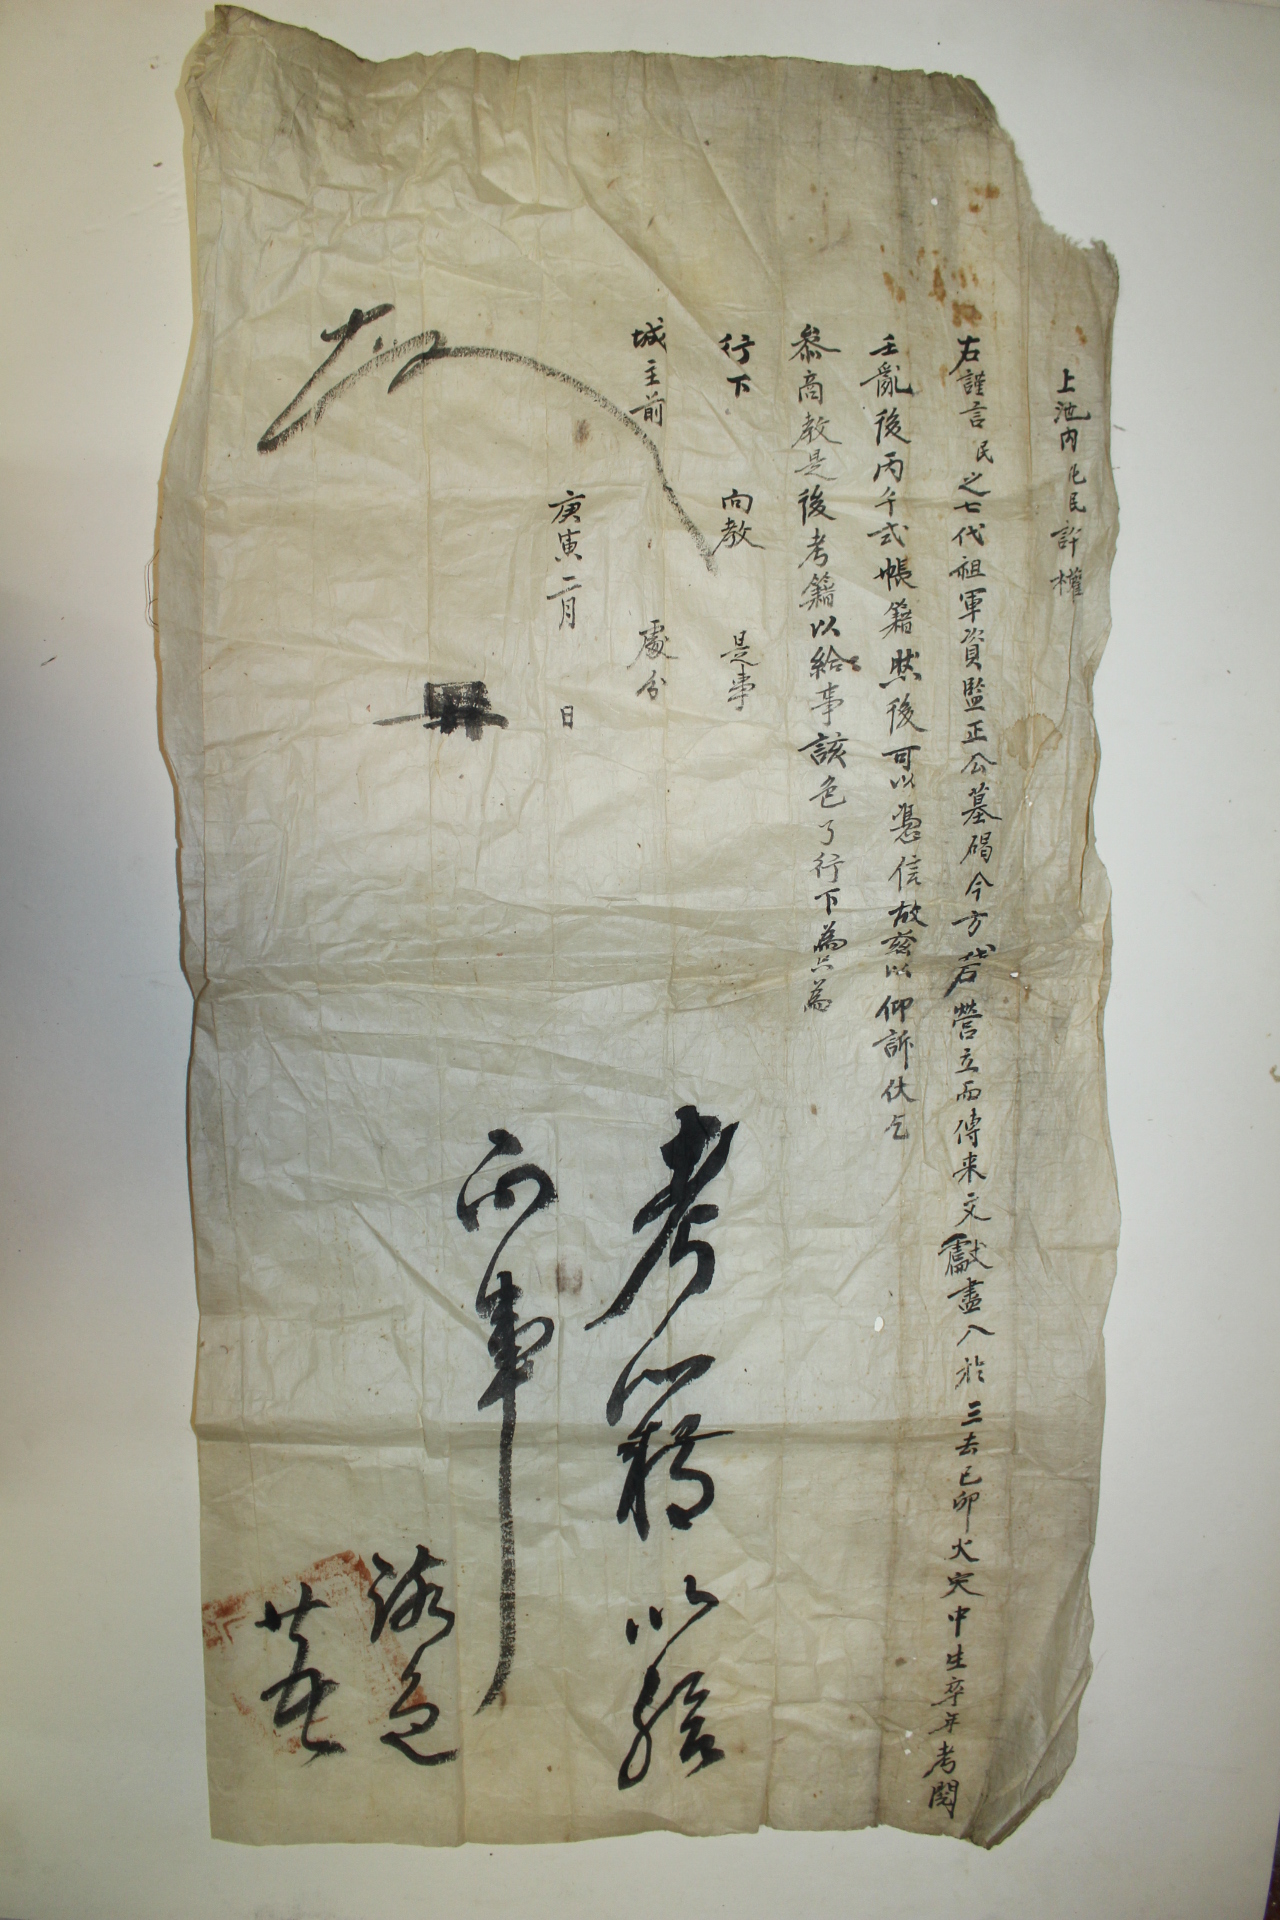 上池內化民許權
右謹言民之七代祖軍資監正公墓碣今方營立而傳來文獻盡入於三去己卯火灾中生卒年考閱
壬亂後丙午式帳籍然後可以憑信故玆以仰訴伏乞
叅商敎是後考籍以給事該色了行下爲只爲
行下 向敎 是事
城主前 處分
庚寅二月 日
考籍以給
向事
該色
廿五